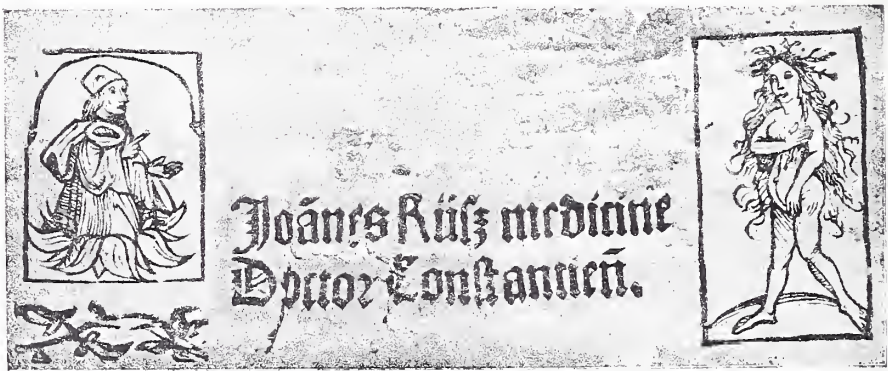 Joānes Rüsz medicine
Doctor Constantieñ.